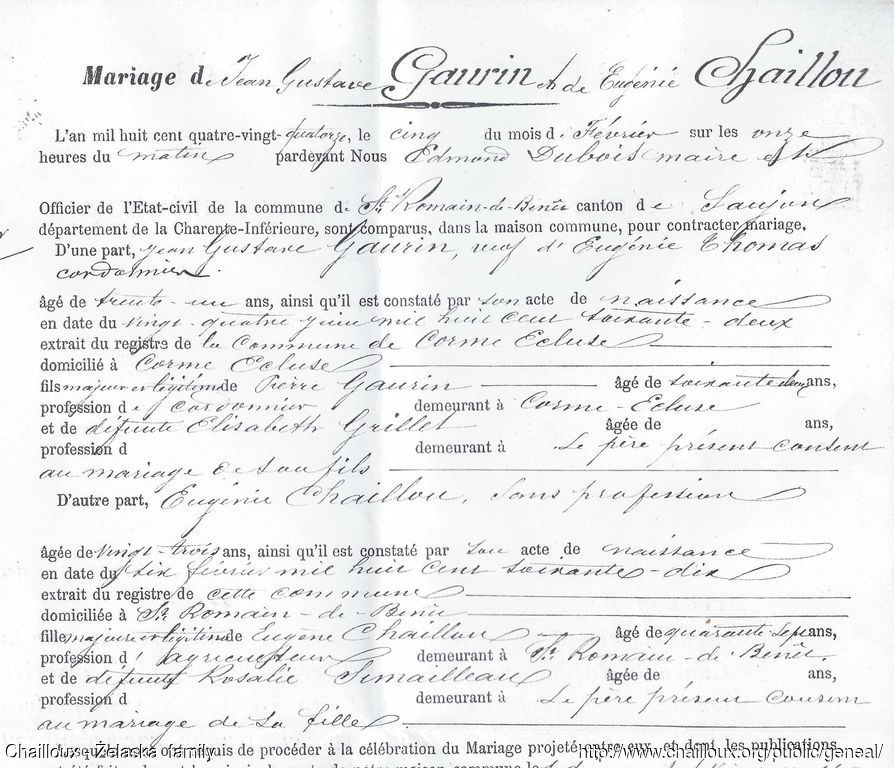 Mariage de Jean Gustave Gaurin et de Eugénie Chaillou
L'an mil huit cent quatre-vingt-quatorze, le cinq du mois de Février sur les onze
heures du matin pardevant Nous Edmond Dubois maire et
Officier de l'Etat-civil de la commune de St Romain-de-Benêt canton de Saujon
département de la Charente-Inférieure, sont comparus, dans la maison commune, pour contracter mariage.
D'une part, Jean Gustave Gaurin, veuf d'Eugénie Thomas
cordonnier.
âgé de trente-un ans, ainsi qu'il est constaté par son acte de naissance
en date du vingt-quatre juin mil huit cent soixante-deux
extrait du registre de la Commune de Corme Ecluse
domicilié à Corme Ecluse
fils majeur et légitime de Pierre Gaurin âgé de soixante deux ans,
profession de cordonnier demeurant à Corme-Ecluse
et de défunte Elisabeth Grillet âgée de ans,
profession d demeurant à Le père présent consent
au mariage de son fils
D'autre part, Eugénie Chaillou, sans profession
âgée de vingt-trois ans, ainsi qu'il est constaté par son acte de naissance
en date du six février mil huit cent soixante-dix
extrait du registre de cette commune
domiciliée à St Romain-de-Benêt
fille majeure et légitime de Eugène Chaillou âgé de quarante sept ans,
profession d'agriculteur demeurant à St Romain-de-Benêt.
et de défunte Rosalie Simailleau âgée de ans,
profession d demeurant à Le père présent consent
au mariage de sa fille
de procéder à la célébration du Mariage projeté entre eux, et dont les publications
Chailloux - Żelaska family http://www.chailloux.org/public/geneal/